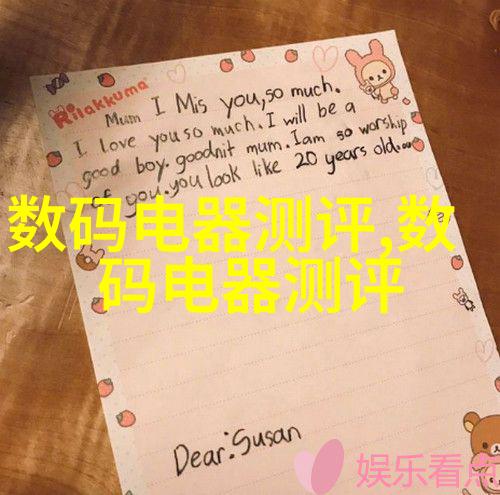 Rilakkuma
Mum I Mis you, so much.
I love you so much. I will be a
good boy. goodnit mum. I am so worship
of you. you look like 20 years old...
数码电器测评,数
码电器测评
Dear: Susan
娱乐看点